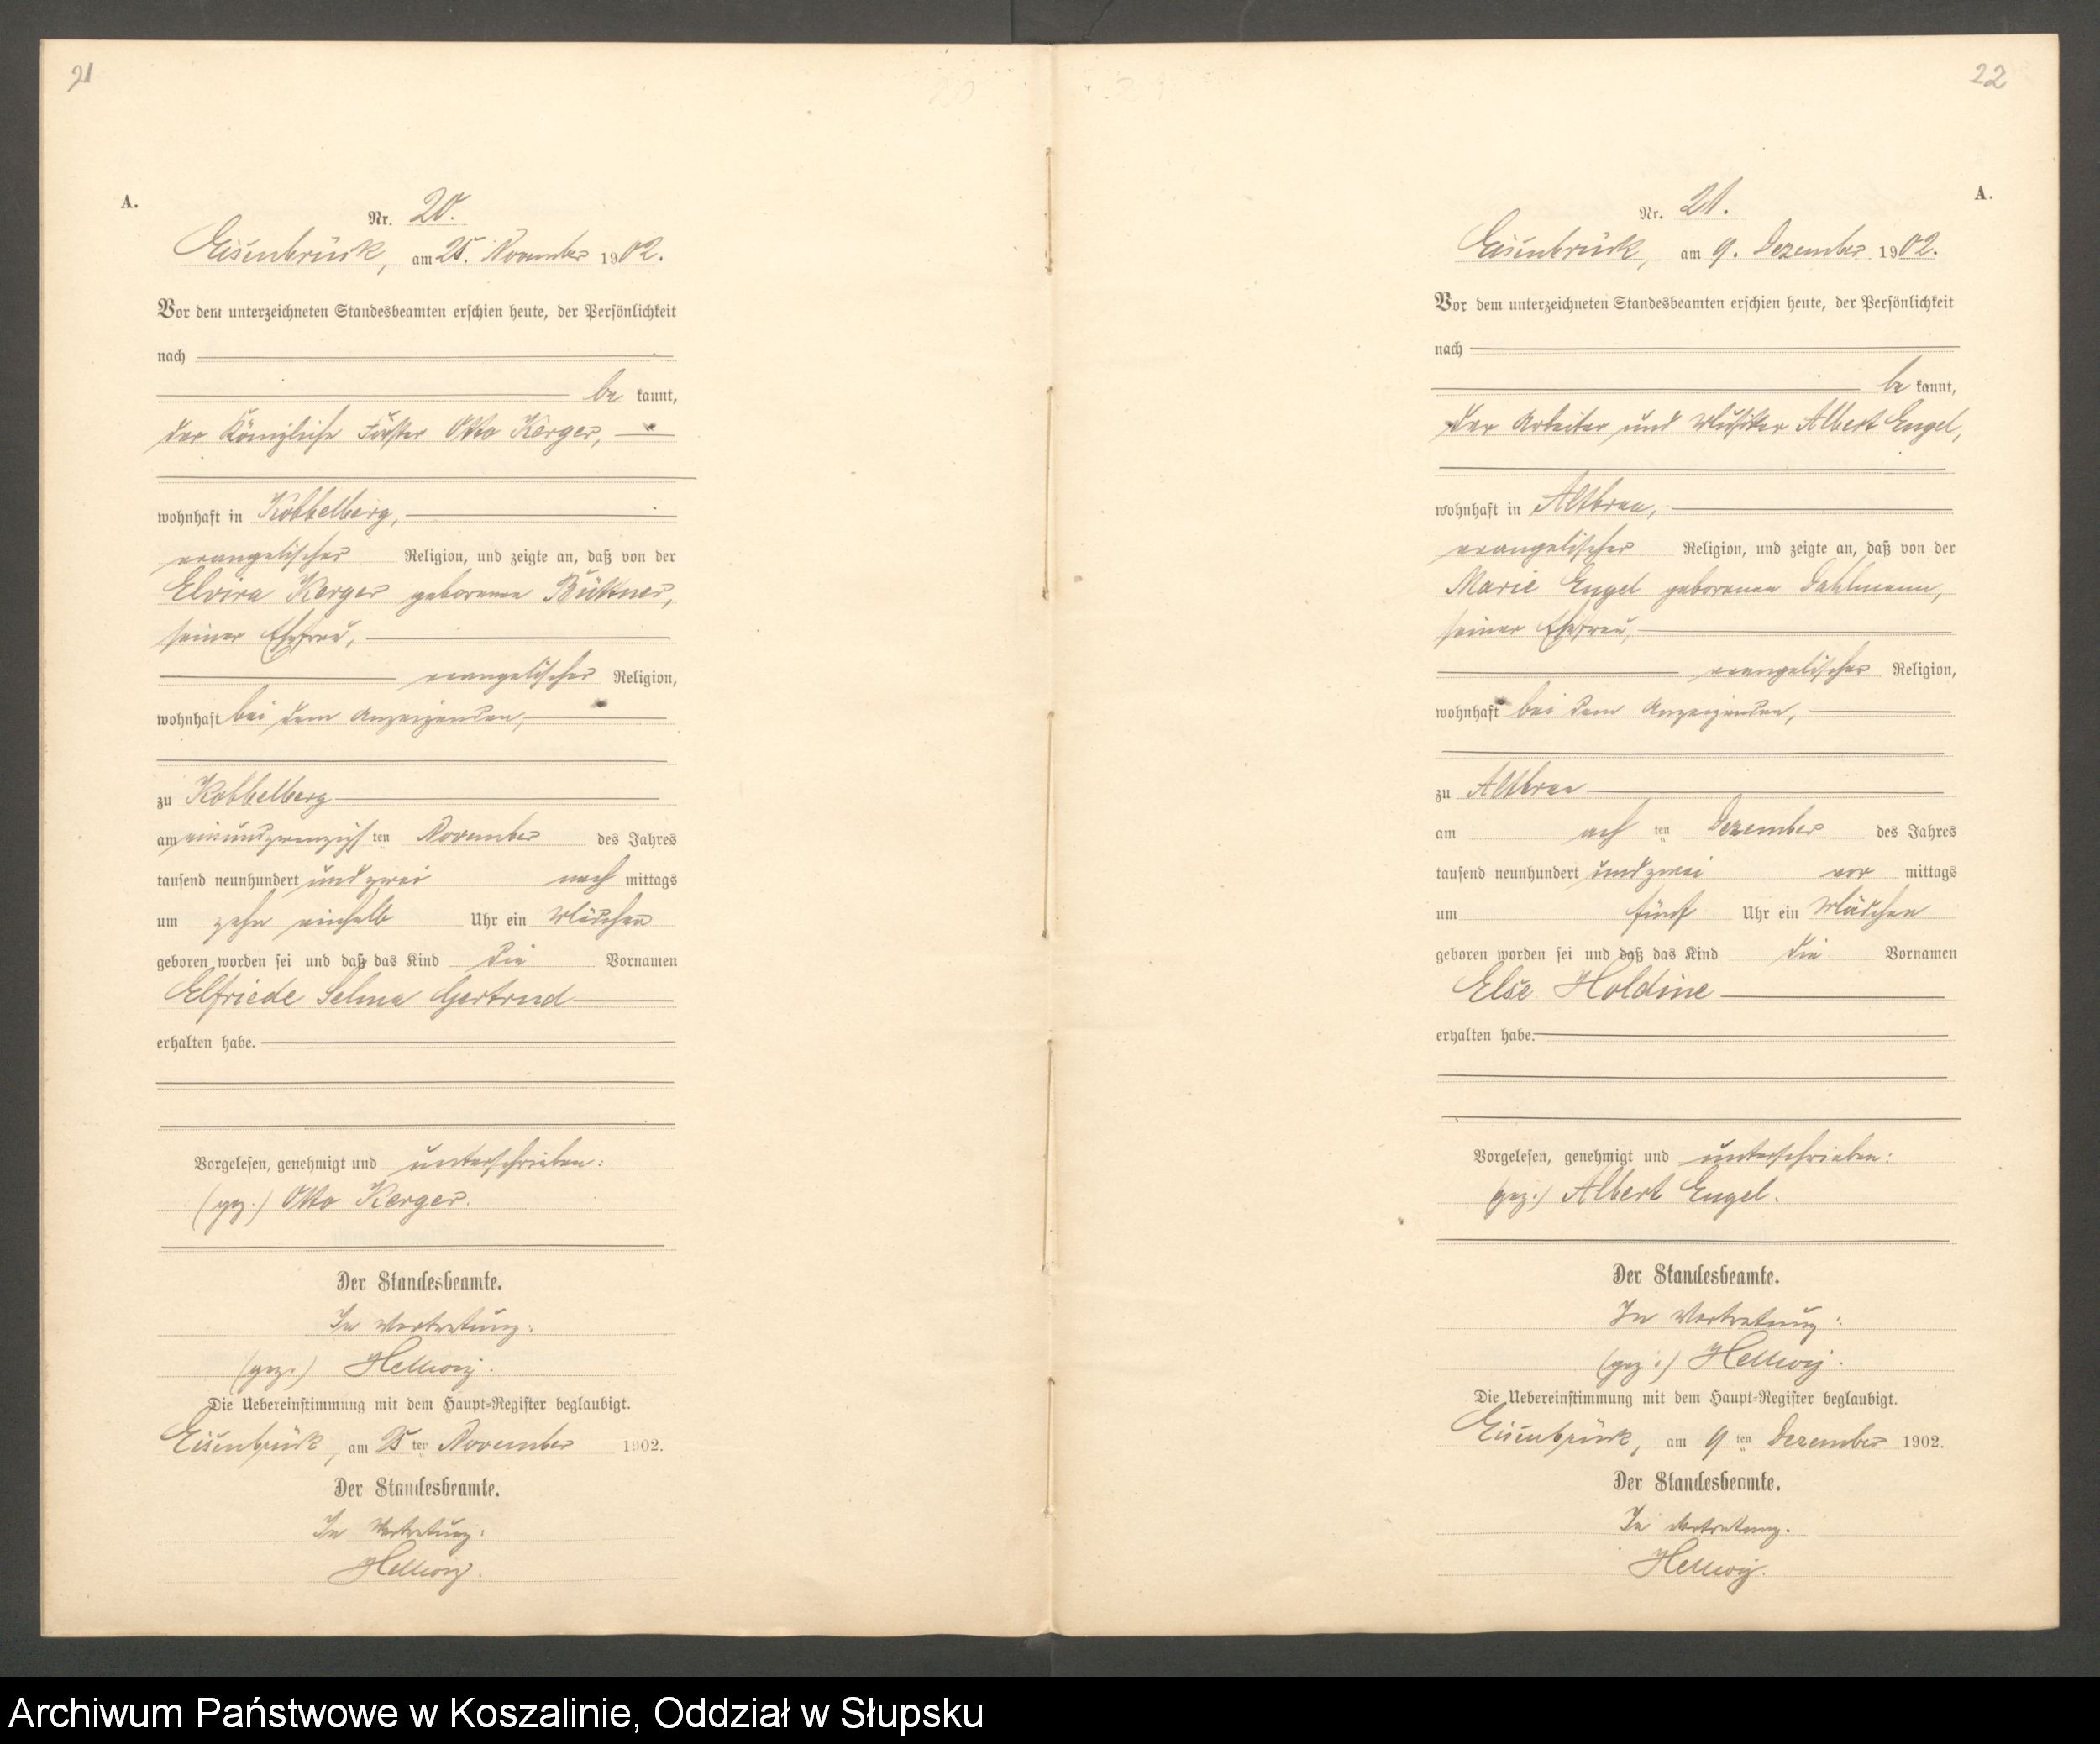 21
A.
Nr. 20.
Eisenbrück, am 25. November 1902.
Vor dem unterzeichneten Standesbeamten erschien heute, der Persönlichkeit
nach
be kannt,
der Königliche Förster Otto Kerger,
wohnhaft in Kobbelberg,
evangelischer Religion, und zeigte an, daß von der
Elvira Kerger geborenen Büttner,
seiner Ehefrau,
evangelischer Religion,
wohnhaft bei dem Anzeigenden,
zu Kobbelberg
am einundzwanzigsten November des Jahres
tausend neunhundert und zwei nach mittags
um zehn einhalb Uhr ein Mädchen
geboren worden sei und daß das Kind die Vornamen
Elfriede Selma Gertrud
erhalten habe.
Vorgelesen, genehmigt und unterschrieben:
(gez.) Otto Kerger.
Der Standesbeamte.
In Vertretung:
(gez.) Hellwig.
Die Uebereinstimmung mit dem Haupt-Register beglaubigt.
Eisenbrück, am 25 ten November 1902.
Der Standesbeamte.
In Vertretung:
Hellwig.
22
A.
Nr. 21.
Eisenbrück, am 9. Dezember 1902.
Vor dem unterzeichneten Standesbeamten erschien heute, der Persönlichkeit
nach
be kannt,
der Arbeiter und Musiker Albert Engel,
wohnhaft in Altbraa,
evangelischer Religion, und zeigte an, daß von der
Marie Engel geborenen Dahlmann,
seiner Ehefrau,
evangelischer Religion,
wohnhaft bei dem Anzeigenden,
zu Altbraa
am ach ten Dezember des Jahres
tausend neunhundert und zwei vor mittags
um fünf Uhr ein Mädchen
geboren worden sei und daß das Kind die Vornamen
Else Holdine
erhalten habe.
Vorgelesen, genehmigt und unterschrieben:
(gez.) Albert Engel.
Der Standesbeamte.
In Vertretung:
(gez.) Hellwig.
Die Uebereinstimmung mit dem Haupt-Register beglaubigt.
Eisenbrück, am 9 ten Dezember 1902.
Der Standesbeamte.
In Vertretung.
Hellwig.
Archiwum Państwowe w Koszalinie, Oddział w Słupsku